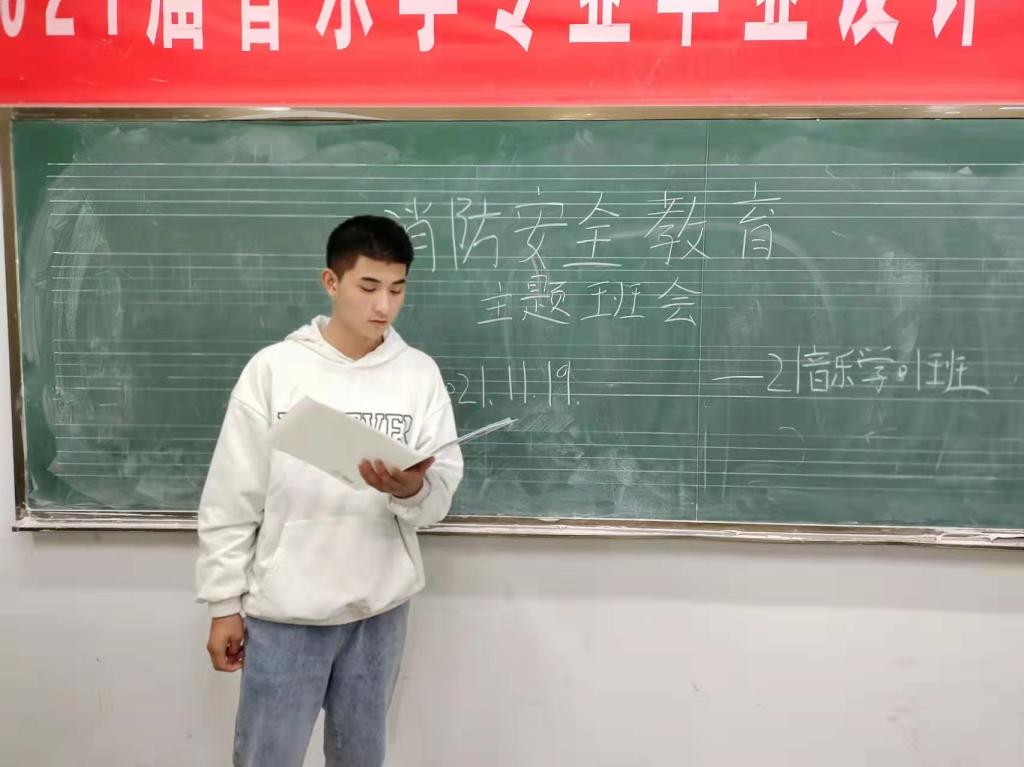 021届音乐学专业毕业设计
消防安全教育
主题班会
021.11.19.
—21音乐学·1班